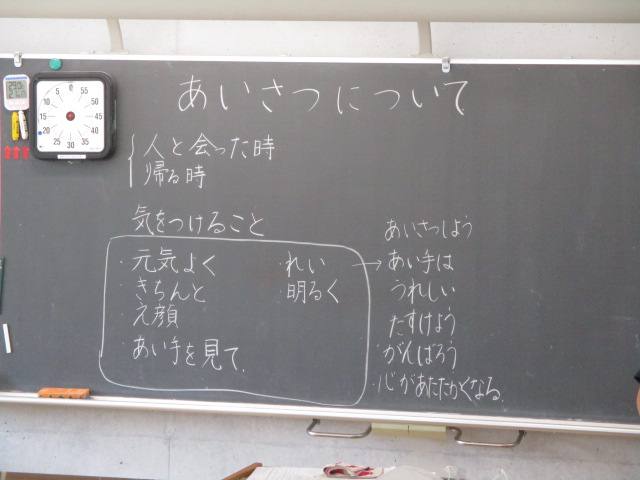 あいさつについて
人と会った時
帰る時
気をつけること
・元気よく
・きちんと
・え顔
・あい手を見て
・れい
・明るく
あいさつしよう
→あい手は
うれしい
たすけよう
・がんばろう
・心があたたかくなる。
5 55
10 50
15 45
20 40
25 30 35